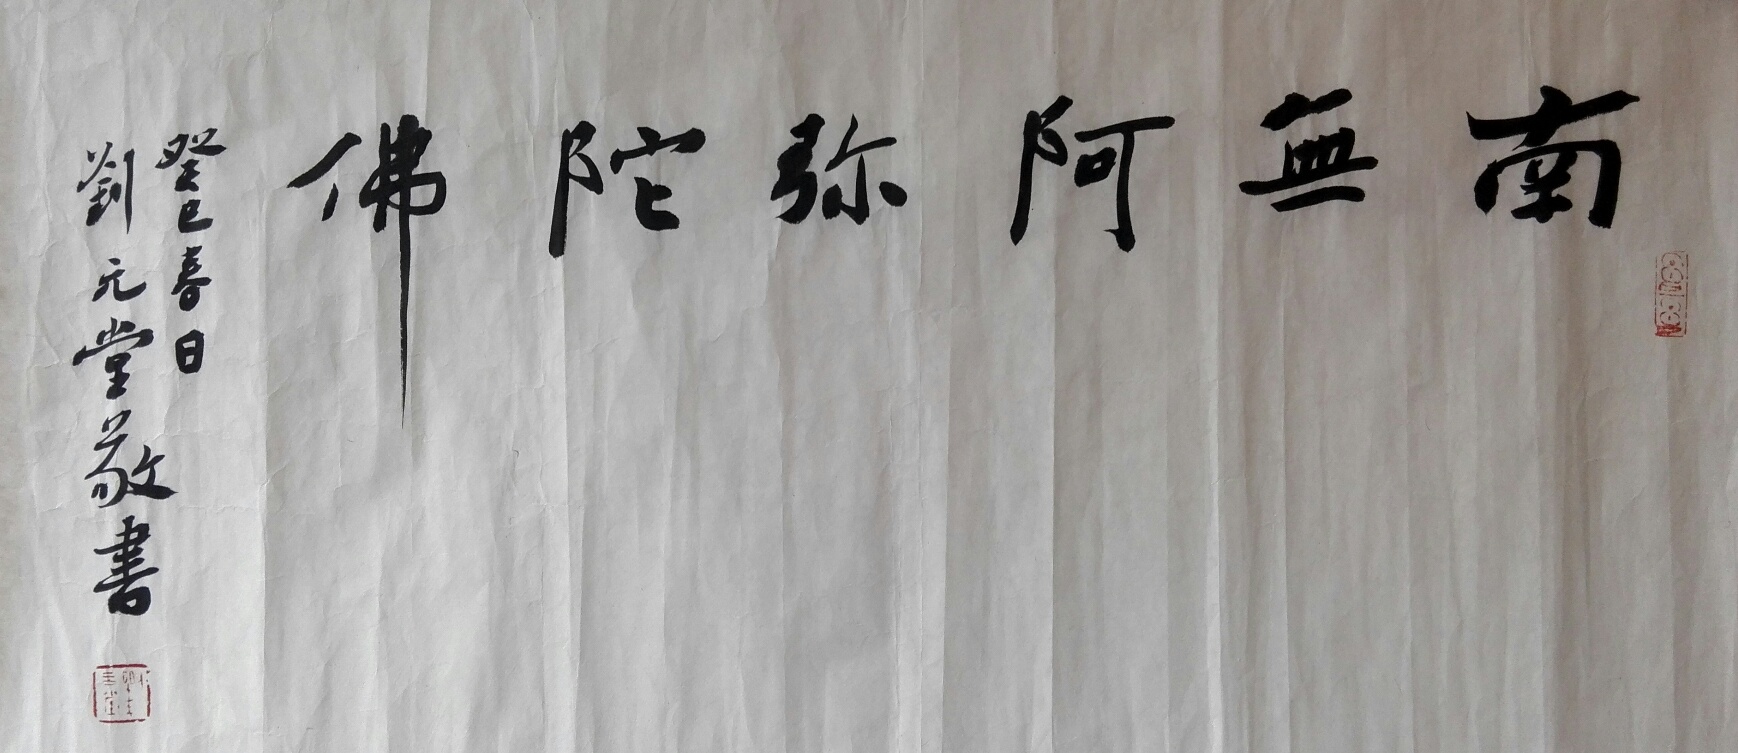 南無阿弥陀佛
癸巳春日
劉元堂敬書